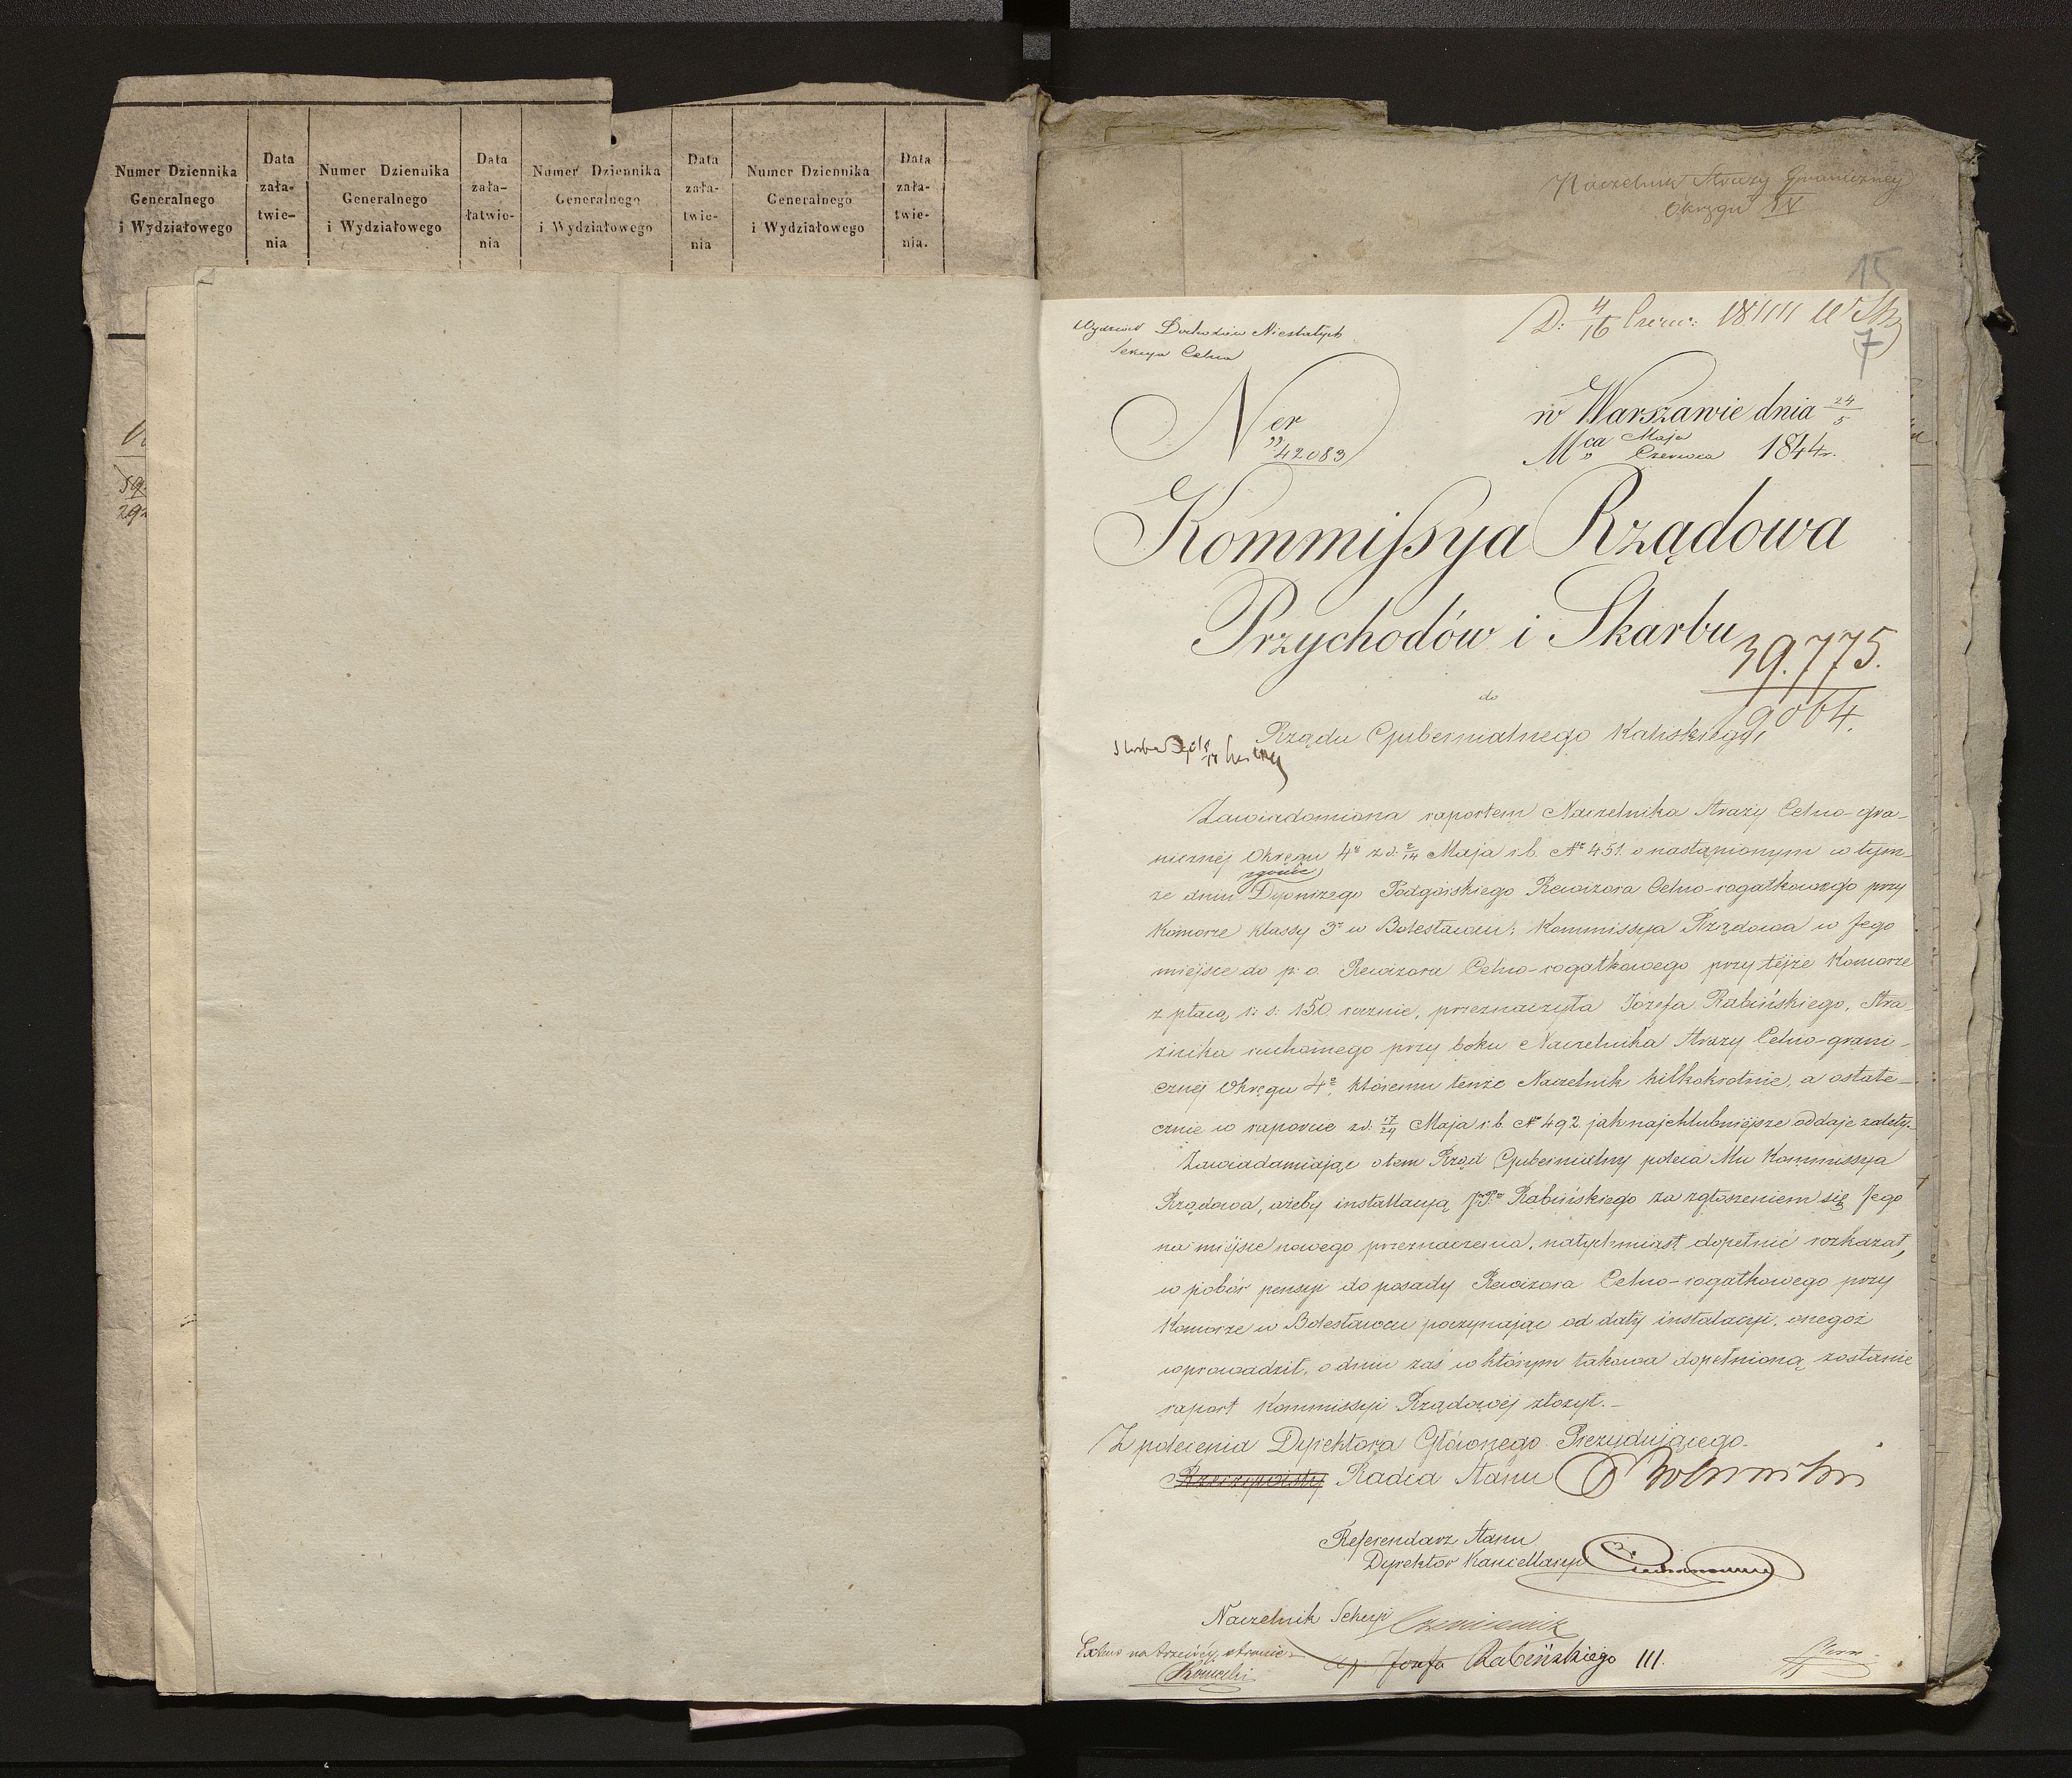 Numer Dziennika
Generalnego
i Wydziałowego
Data
zała-
twie-
nia
Numer Dziennika
Generalnego
i Wydziałowego
Data
zała-
łatwie-
nia
Numer Dziennika
Generalnego
i Wydziałowego
Data
zała-
twie-
nia
Numer Dziennika
Generalnego
i Wydziałowego
Data
zała-
twie-
nia.
Naczelnik Straży Graniczney
Okręgu IV
15
D: 4/16 Czerw: 1844
7
Wydział Dochodów Niestałych
Sekcya Celna
Ner
42083
w Warszawie dnia 24/5
Mca Maja/Czerwca 1844 r.
Kommissya Rządowa
Przychodów i Skarbu
39.775.
9064.
do
Rządu Gubernialnego Kaliskiego,
Zawiadomiona raportem Naczelnika Straży Celno-gra-
nicznéj Okręgu 4º z d. 2/14 Maja r. b. Nº 451. o nastąpionym w tym-
że dniu zgonie Dyonizego Podgórskiego Rewizora Celno-rogatkowego przy
Komorze klassy 3ej w Bolesławcu; Kommissya Rządowa w Jego
miejsce do p: o. Rewizora Celno-rogatkowego przy téjże Komorze
z płacą r: s: 150 rocznie, przeznaczyła Józefa Rabińskiego, Stra-
żnika ruchomego przy boku Naczelnika Straży Celno-grani-
cznéj Okręgu 4º, któremu tenże Naczelnik kilkokrotnie, a ostate-
cznie w raporcie z d. 17/29 Maja r. b. Nº 492 jak najchlubniejsze oddaje zalety.
Zawiadamiając o tem Rząd Gubernialny poleca Mu Kommissya
Rządowa, ażeby installacyą Rabińskiego za zgłoszeniem się Jego
na miejsce nowego przeznaczenia, natychmiast dopełnić rozkazał,
w pobór pensyi do posady Rewizora Celno-rogatkowego przy
Komorze w Bolesławcu poczynając od daty instalacyi, onegoż
wprowadził, o dniu zaś w którym takowa dopełnioną zostanie
raport Kommissyi Rządowéj złożył.-
Z polecenia Dyrektora Głównego Prezydującego.
Rzeczywisty Radca Stanu
Referendarz Stanu
Dyrektor Kancellaryi
Naczelnik Sekcyi
na trzeciéj stronie
Józefa Rabińskiego III.